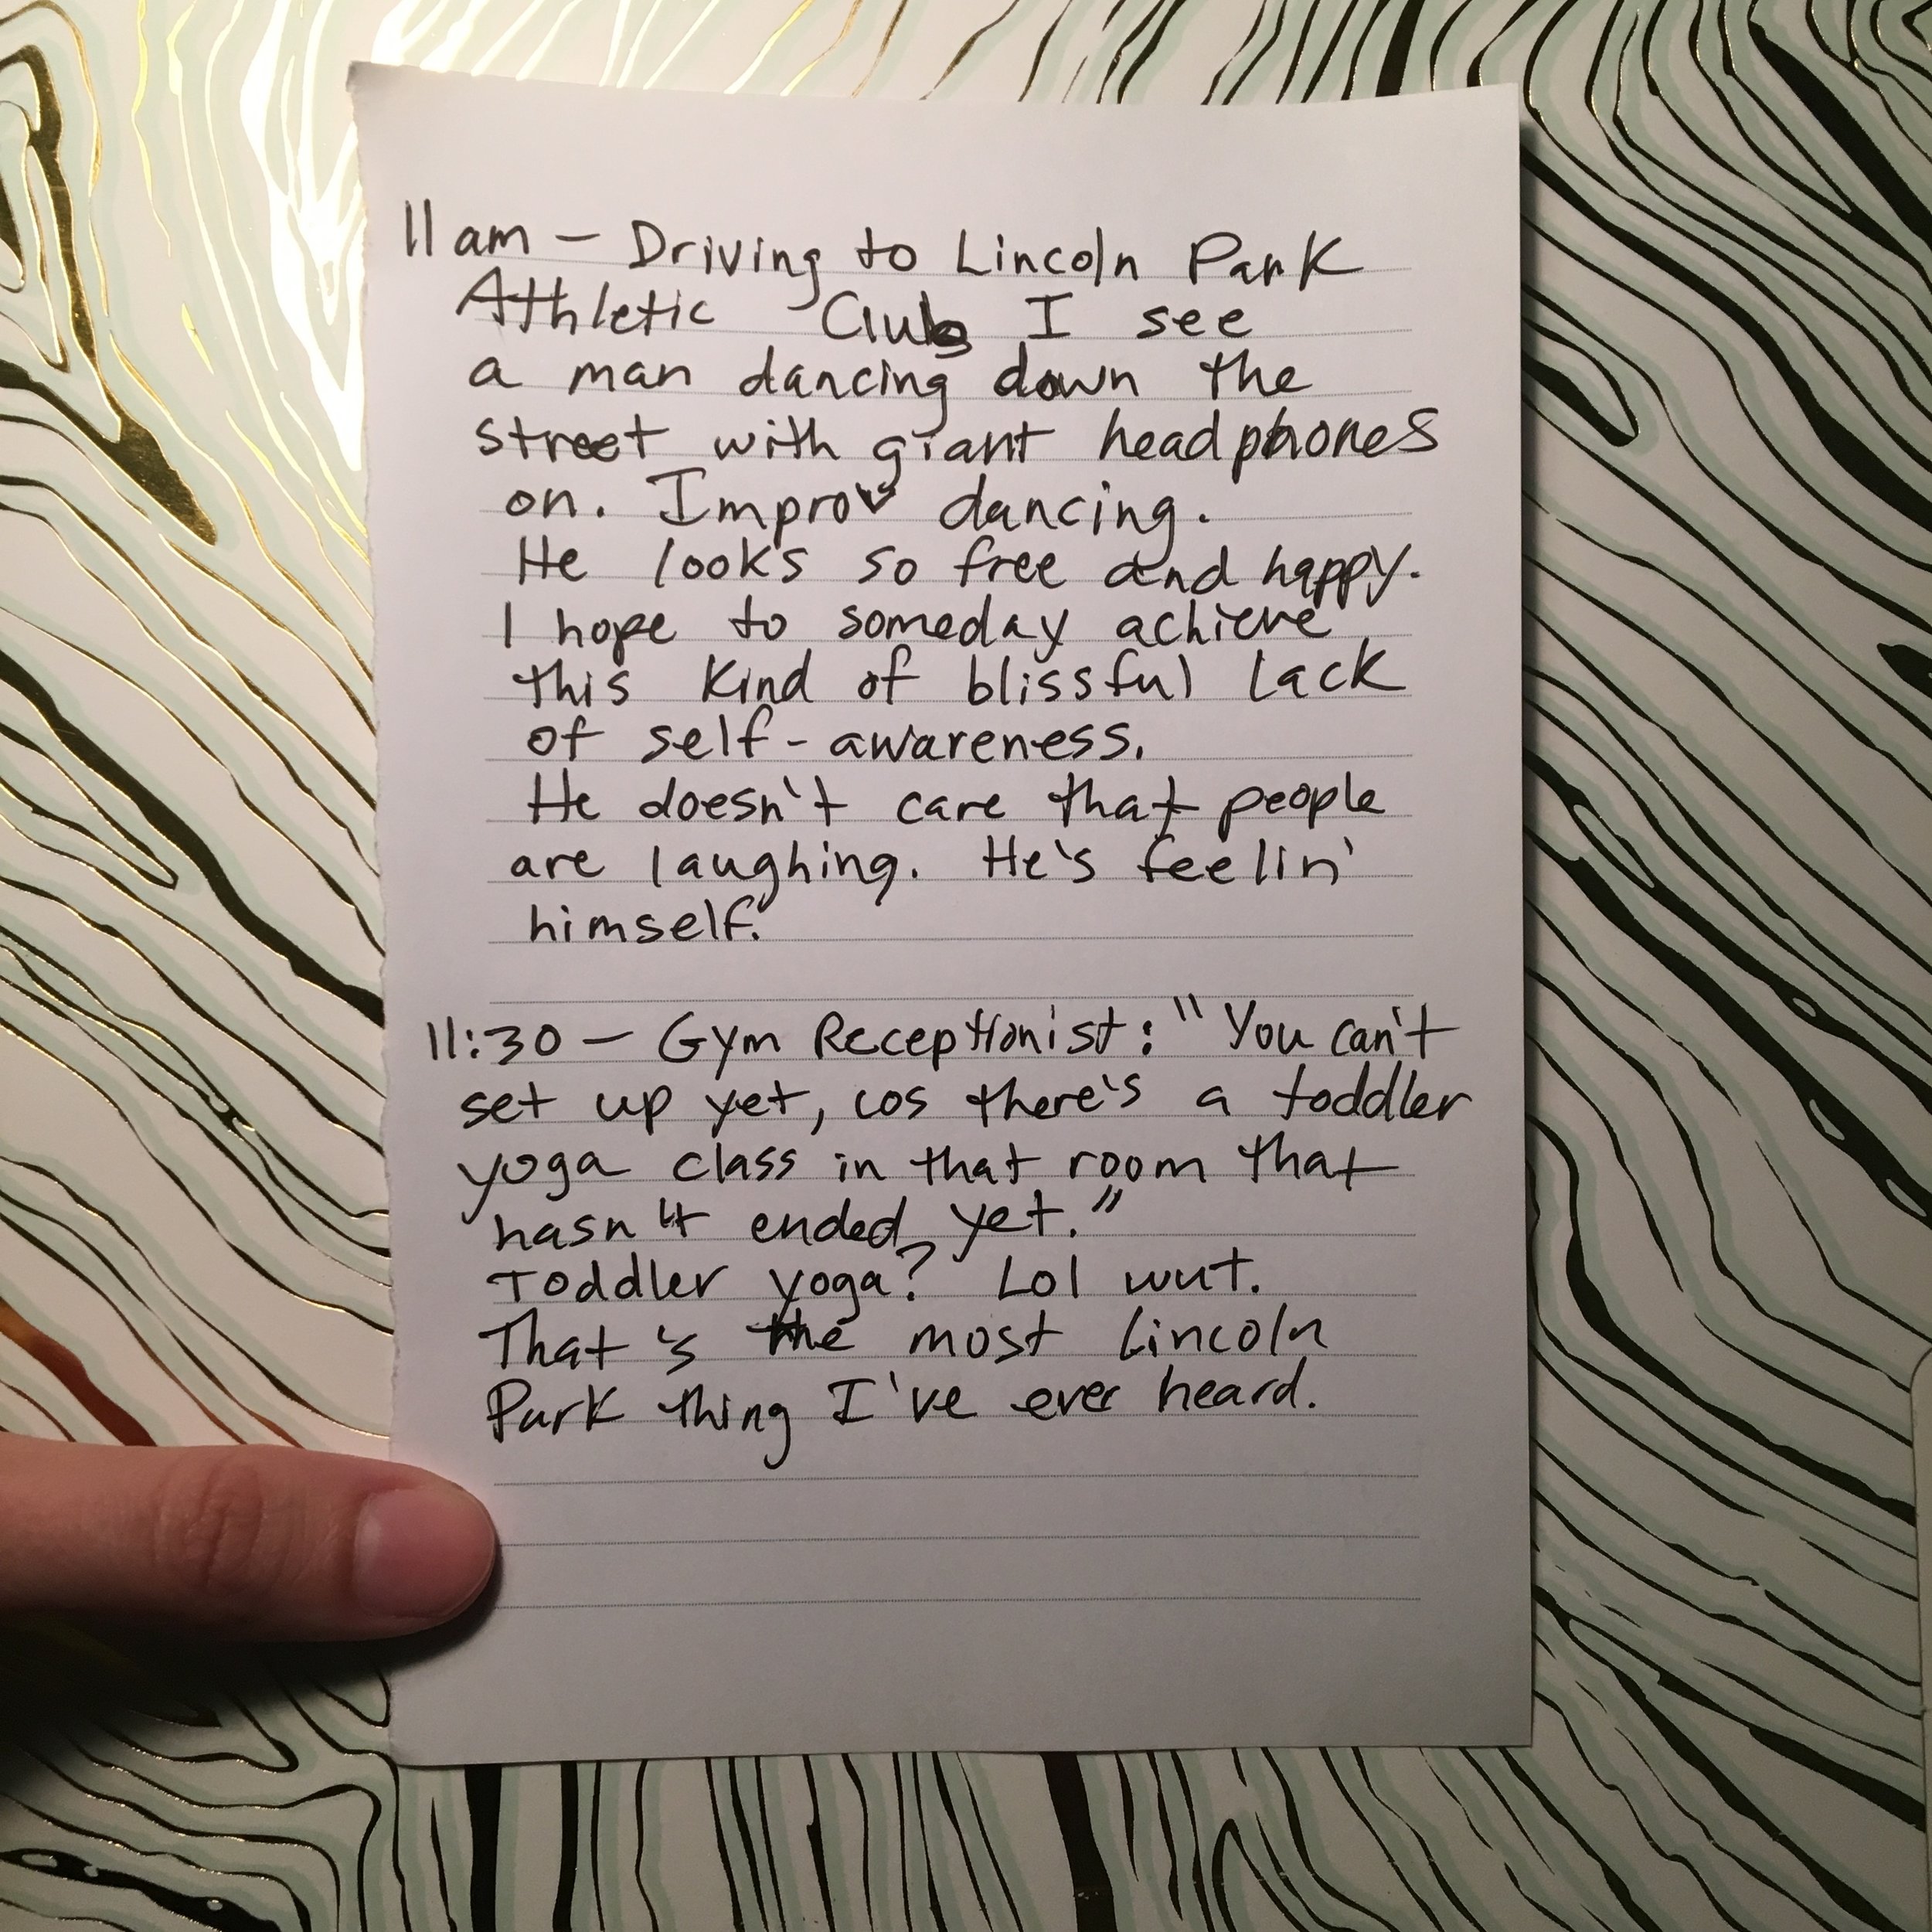 11am — Driving to Lincoln Park
Athletic Club I see
a man dancing down the
street with giant headphones
on. Improv dancing.
He looks so free and happy.
I hope to someday achieve
this kind of blissful lack
of self-awareness.
He doesn't care that people
are laughing. He's feelin'
himself.
11:30 — Gym Receptionist: "You can't
set up yet, cos there's a toddler
yoga class in that room that
hasn't ended yet."
Toddler yoga? Lol wut.
That's the most Lincoln
Park thing I've ever heard.